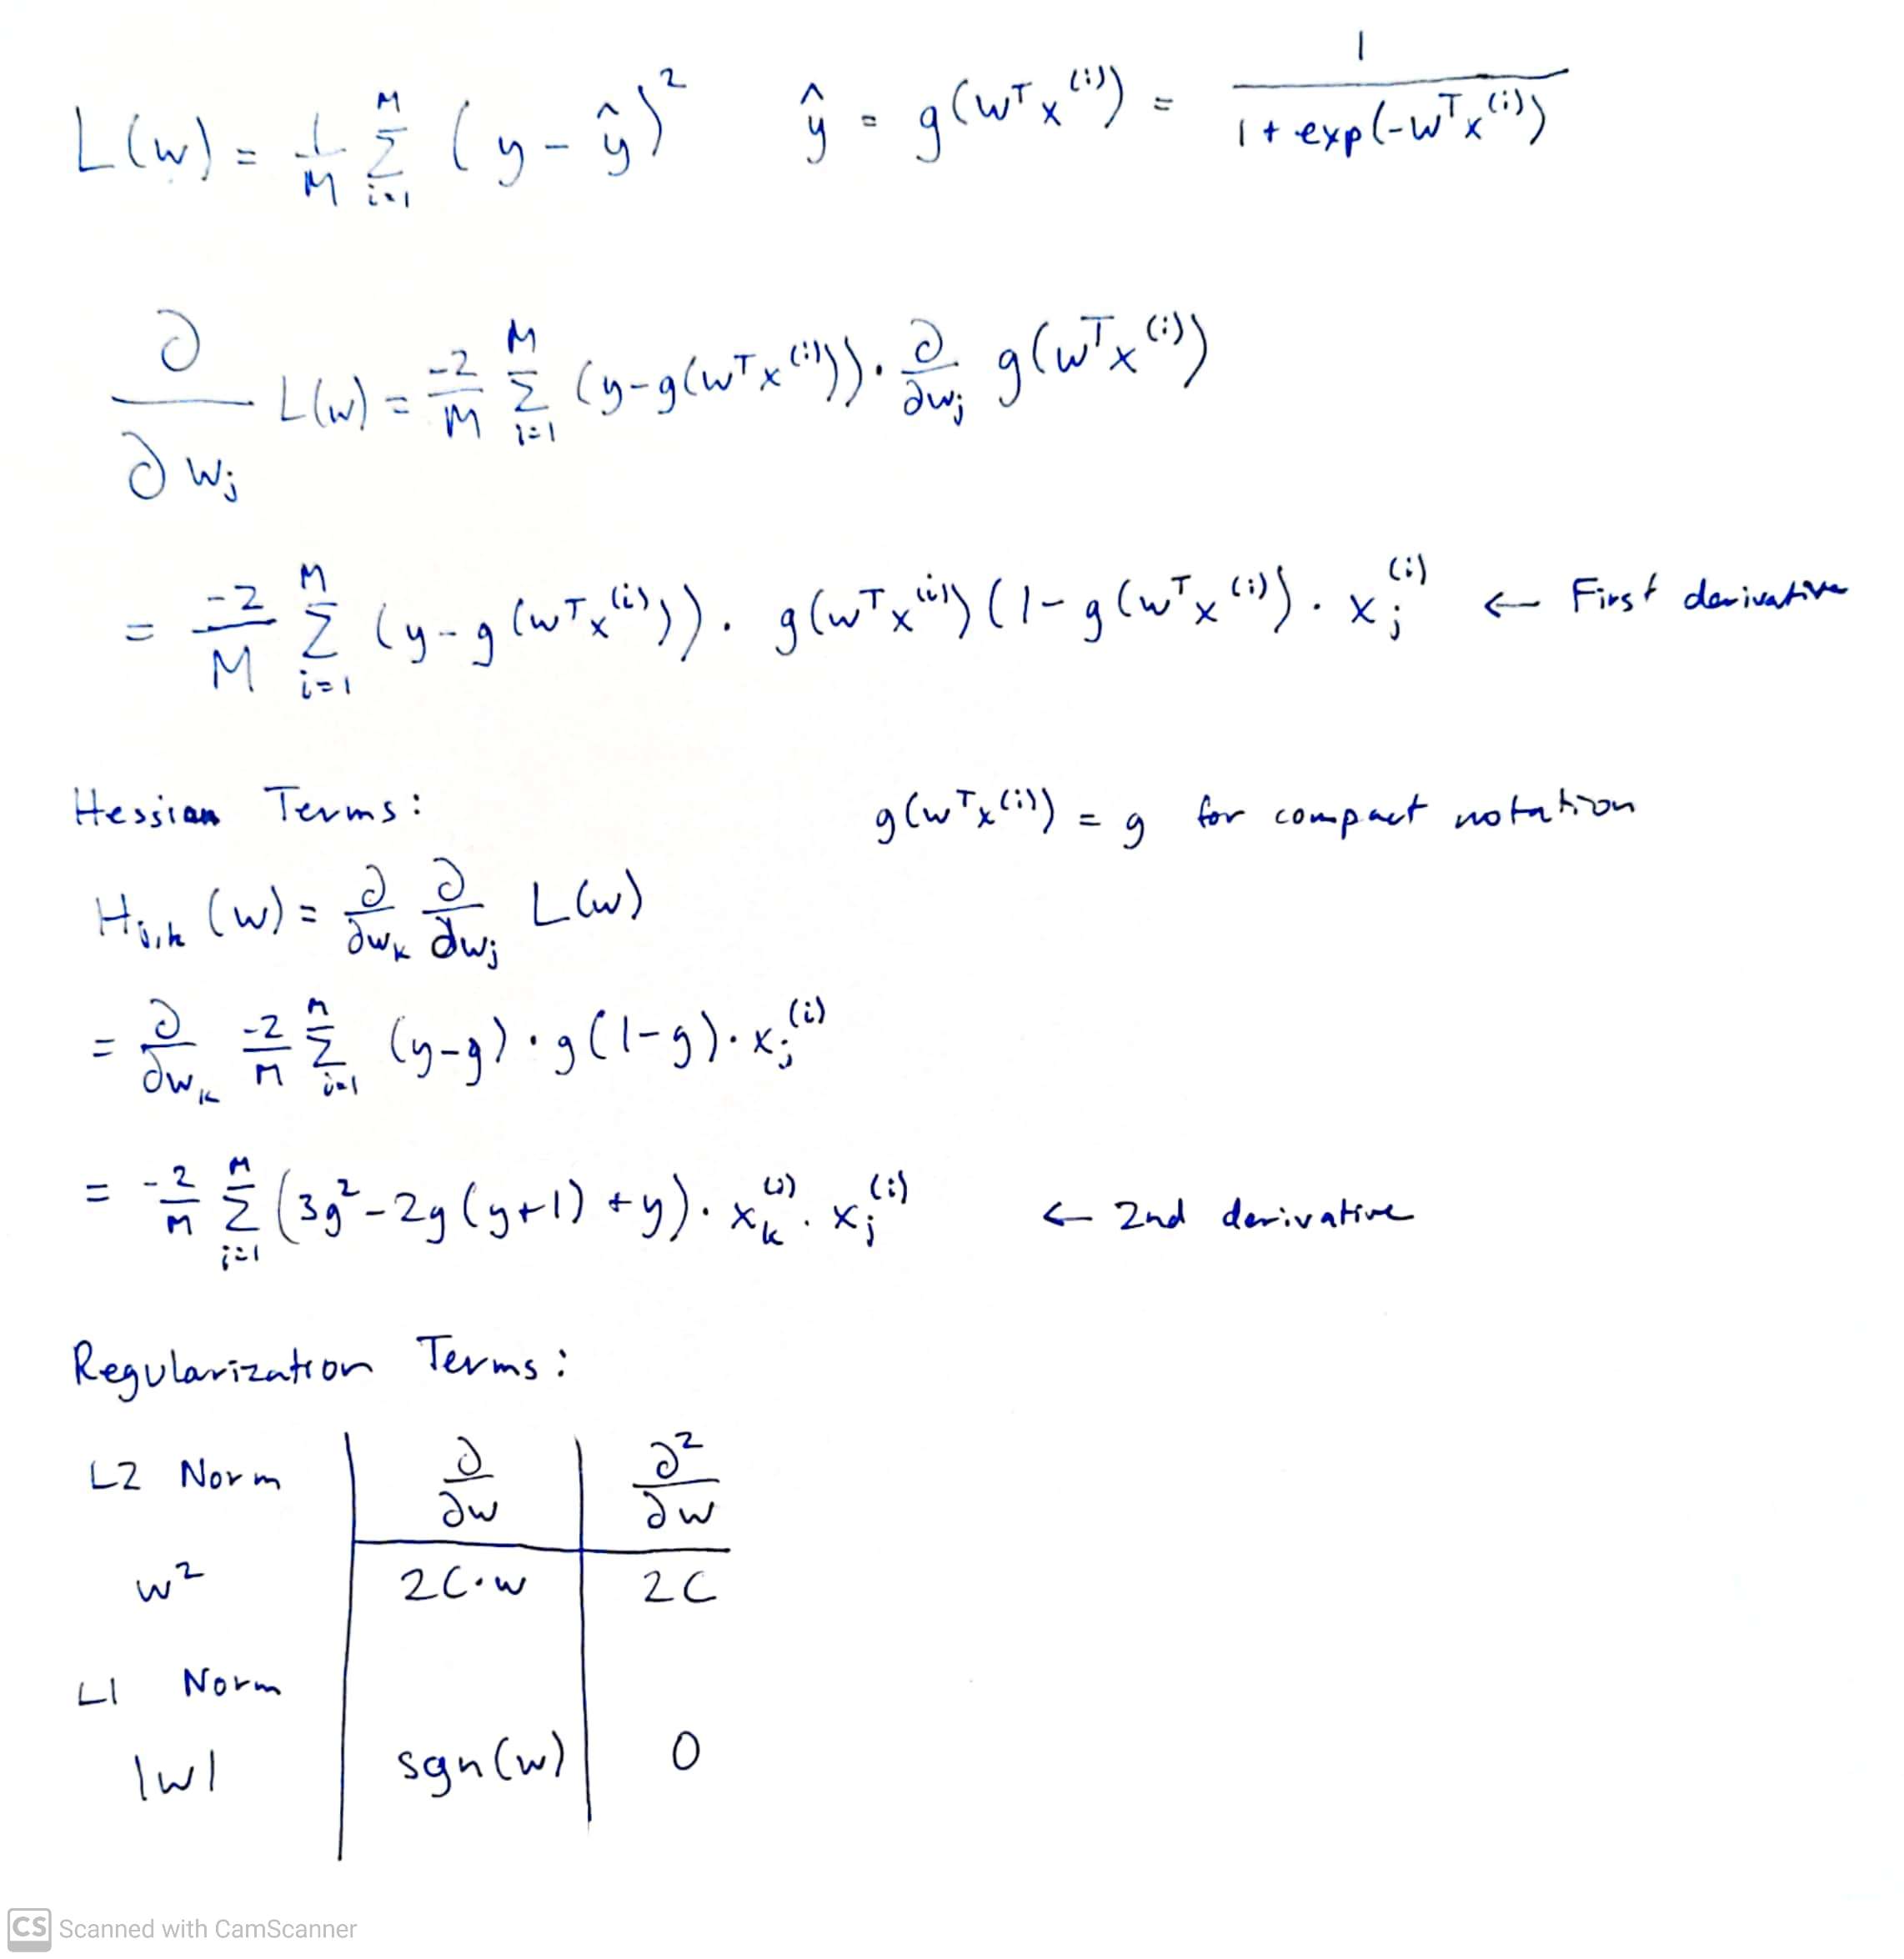 L(w) = 1/M Σ_{i=1}^{M} (y - ŷ)² ŷ = g(wᵀx⁽ⁱ⁾) = 1 / (1 + exp(-wᵀx⁽ⁱ⁾))
∂/∂w_j L(w) = -2/M Σ_{i=1}^{M} (y-g(wᵀx⁽ⁱ⁾)) · ∂/∂w_j g(wᵀx⁽ⁱ⁾)
= -2/M Σ_{i=1}^{M} (y-g(wᵀx⁽ⁱ⁾)) · g(wᵀx⁽ⁱ⁾)(1-g(wᵀx⁽ⁱ⁾) · x_j⁽ⁱ⁾ ← First derivative
Hessian Terms: g(wᵀx⁽ⁱ⁾) = g for compact notation
H_{j,k} (w) = ∂/∂w_k ∂/∂w_j L(w)
= ∂/∂w_k -2/M Σ_{i=1}^{M} (y-g) · g(1-g) · x_j⁽ⁱ⁾
= -2/M Σ_{i=1}^{M} (3g²-2g(y+1)+y) · x_k⁽ⁱ⁾ · x_j⁽ⁱ⁾ ← 2nd derivative
Regularization Terms:
L2 Norm ∂/∂w ∂²/∂w
w² 2C·w 2C
L1 Norm
|w| sgn(w) 0
CS Scanned with CamScanner